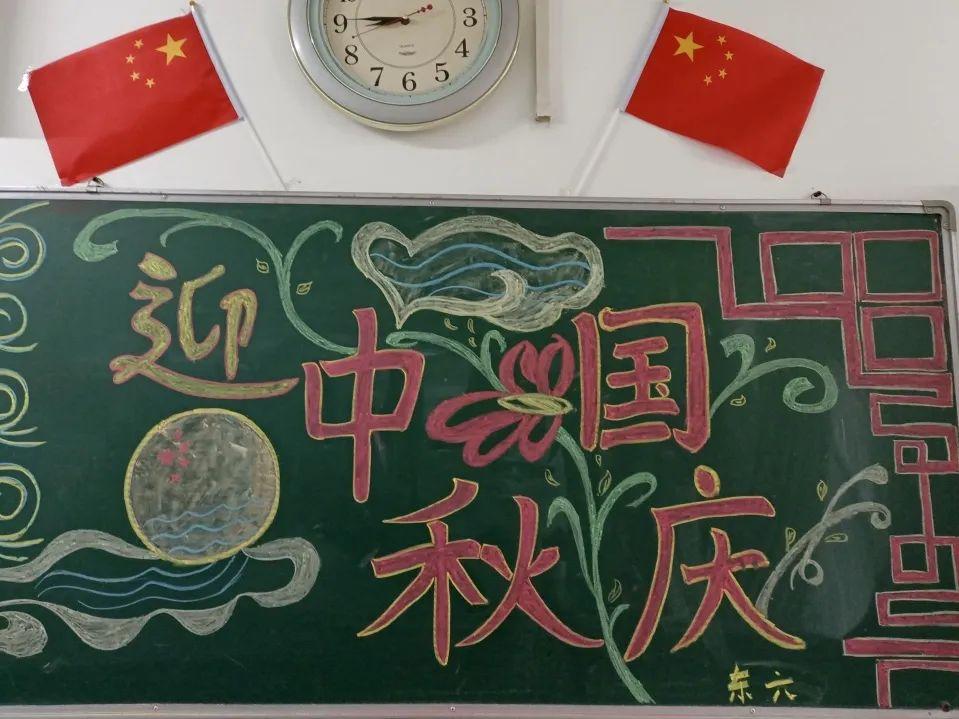 10
9 3
8 4
7 6 5
迎中国
秋庆
东六